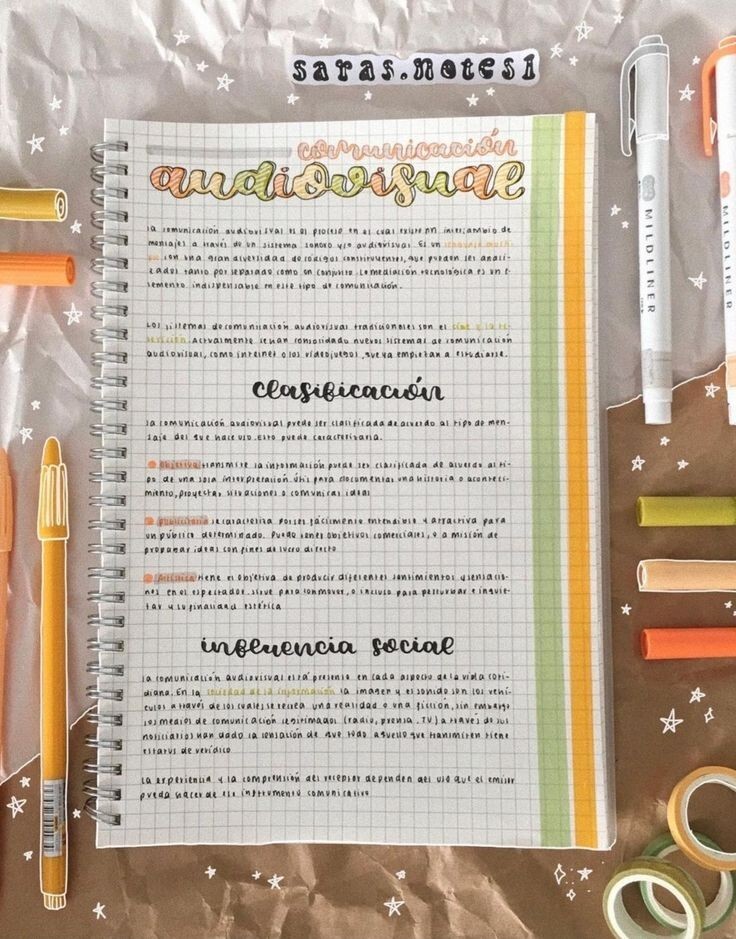 saras.notes1
comunicación
audiovisual
La comunicación audiovisual es el proceso en el cual existe un intercambio de
mensajes a través de un sistema sonoro y/o audiovisual. Es un lenguaje multi-
ple con una gran diversidad de códigos constituyentes, que pueden ser anali-
zados tanto por separado como en conjunto. La mediación tecnológica es un e-
lemento indispensable en este tipo de comunicación.
Los sistemas de comunicación audiovisual tradicionales son el cine y la te-
levisión. Actualmente se han consolidado nuevos sistemas de comunicación
audiovisual, como internet o los videojuegos, que ya empiezan a estudiarse.
clasificación
La comunicación audiovisual puede ser clasificada de acuerdo al tipo de men-
saje del que hace uso. Esto puede caracterizarla.
Objetiva transmite la información puede ser clasificada de acuerdo al ti-
po de una sola interpretación. Útil para documentar una historia o aconteci-
miento, proyectar situaciones o comunicar ideas
publicitaria se caracteriza por ser fácilmente entendible y atractiva para
un público determinado. Puede tener objetivos comerciales, o a misión de
propagar ideas con fines de lucro directo
Artística tiene el objetivo de producir diferentes sentimientos y sensacio-
nes en el espectador. Sirve para conmover, o incluso para perturbar e inquie-
tar y su finalidad estética
influencia social
La comunicación audiovisual está presente en cada aspecto de la vida coti-
diana. En la sociedad de la información la imagen y el sonido son los vehí-
culos a través de los cuales se recrea una realidad o una ficción, sin embargo
los medios de comunicación legitimados (radio, prensa, TV) a través de sus
noticiarios han dado la sensación de que todo aquello que transmiten tiene
estatus de verídico
La experiencia y la comprensión del receptor dependen del uso que el emisor
pueda hacer de ese instrumento comunicativo
MILDLINER
MILDLINER